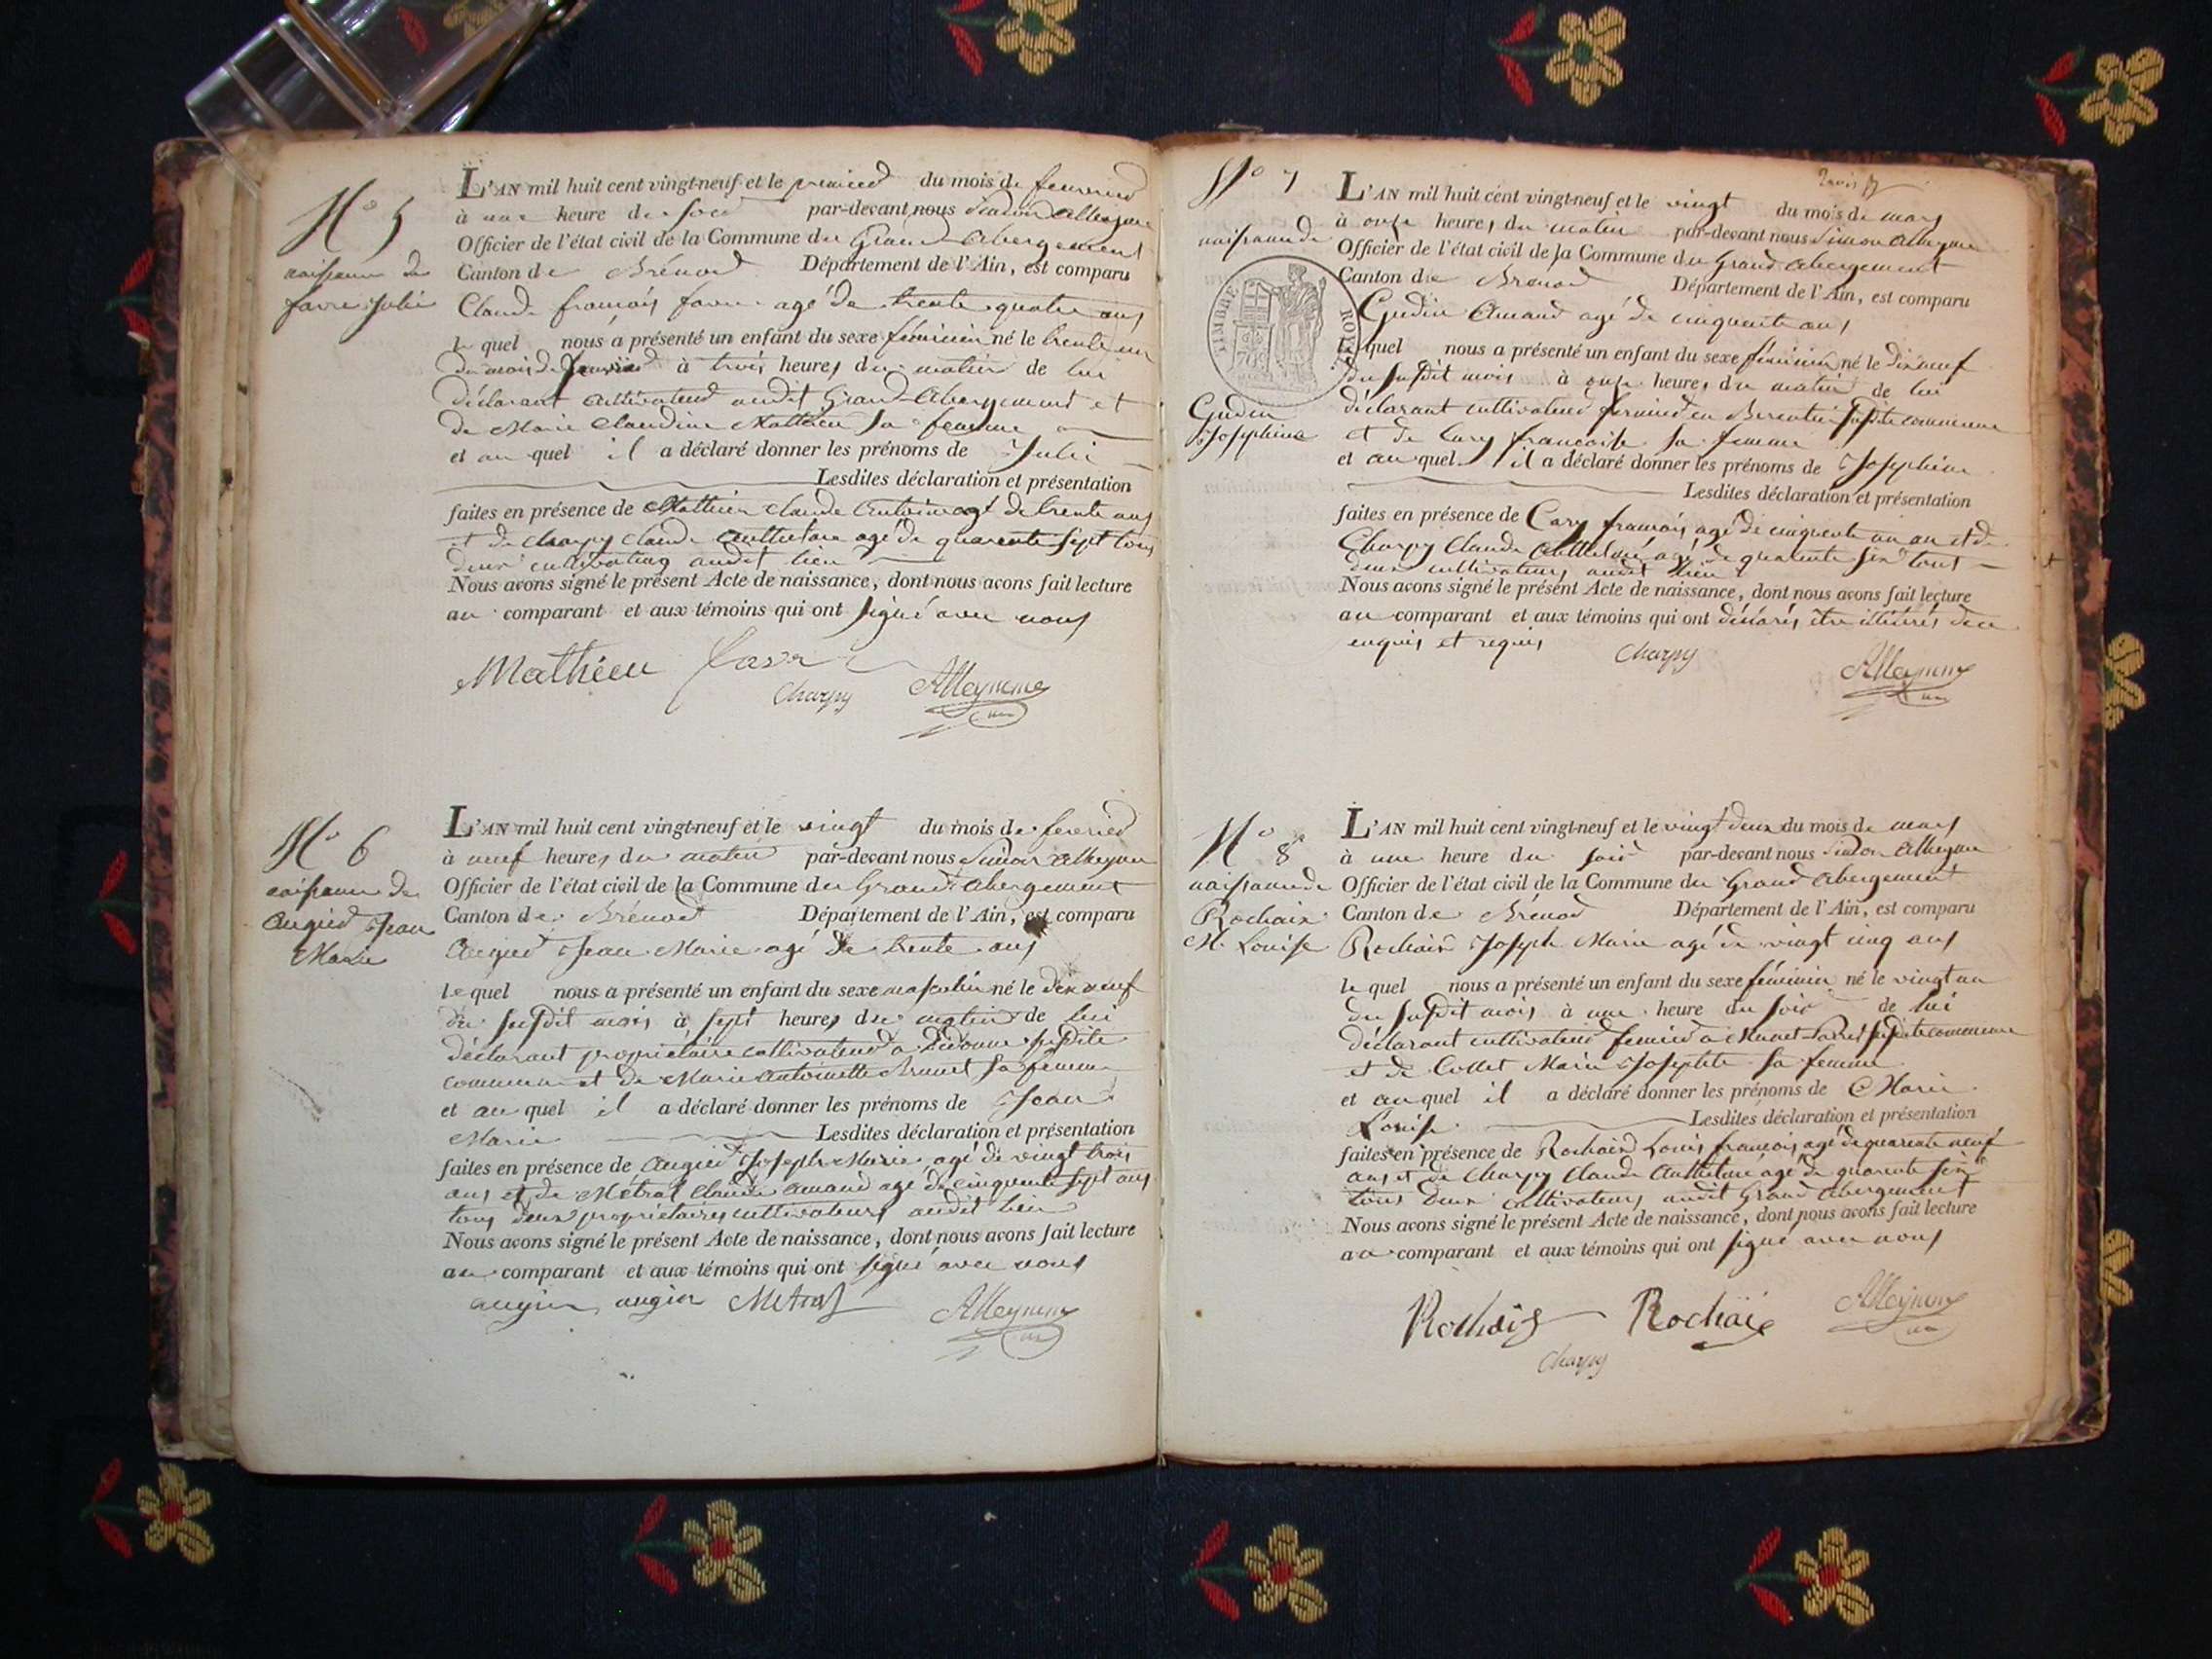 N° 5
naissance de
favre Julie
L'AN mil huit cent vingt-neuf et le premier du mois de fevrier
à une heure du soir par-devant nous Simon Alleyme
Officier de l'état civil de la Commune du Grand Abergement
Canton de Brénod Département de l'Ain, est comparu
Claude françois favre agé de trente quatre ans
le quel nous a présenté un enfant du sexe féminin né le trente un
du mois de Janvier à trois heures du matin de lui
déclarant cultivateur audit Grand Abergement et
de Marie Claudine Mathieu sa femme
et au quel il a déclaré donner les prénoms de Julie
Lesdites déclaration et présentation
faites en présence de Mathieu Claude Antoine agé de trente ans
et de Charpy Claude Anthelme agé de quarente sept tous
deux cultivateurs audit lieu
Nous avons signé le présent Acte de naissance, dont nous avons fait lecture
au comparant et aux témoins qui ont signé avec nous
Mathieu favre
Charpy Alleymme
N° 6
naissance de
Augier Jean
Marie
L'AN mil huit cent vingt-neuf et le vingt du mois de fevrier
à neuf heures du matin par-devant nous Simon Alleyme
Officier de l'état civil de la Commune du Grand Abergement
Canton de Brénod Département de l'Ain, est comparu
Augier Jean Marie agé de trente ans
le quel nous a présenté un enfant du sexe masculin né le dix neuf
du susdit mois à sept heures du matin de lui
déclarant propriétaire cultivateur a susdite
commune et de Marie Antoinette Brunet sa femme
et au quel il a déclaré donner les prénoms de Jean
Marie Lesdites déclaration et présentation
faites en présence de Augier Joseph Marie agé de vingt trois
ans et de Métral Claude Amand agé de cinquente sept ans
tous deux propriétaires cultivateurs audit lieu
Nous avons signé le présent Acte de naissance, dont nous avons fait lecture
au comparant et aux témoins qui ont signé avec nous
augier augier Metral Alleymme
N° 7
naissance de
TIMBRE ROYAL
Gudin
Josephine
L'AN mil huit cent vingt-neuf et le vingt du mois de mars
à onze heures du matin par-devant nous Simon Alleyme
Officier de l'état civil de la Commune du Grand Abergement
Canton de Brenod Département de l'Ain, est comparu
Gudin Amand agé de cinquente ans
le quel nous a présenté un enfant du sexe féminin né le dix neuf
du susdit mois à onze heures du matin de lui
déclarant cultivateur fermier en susdite commune
et de Cary francoise sa femme
et au quel il a déclaré donner les prénoms de Josephine
Lesdites déclaration et présentation
faites en présence de Cary francois agé de cinquente un an et de
Charpy Claude Anthelme agé de quarente six tous
deux cultivateurs audit lieu
Nous avons signé le présent Acte de naissance, dont nous avons fait lecture
au comparant et aux témoins qui ont déclarés être illitérés de ce
enquis et requis Charpy Alleymme
N° 8
naissance de
Rochaix
M. Louise
L'AN mil huit cent vingt-neuf et le vingt deux du mois de mars
à une heure du soir par-devant nous Simon Alleyme
Officier de l'état civil de la Commune du Grand Abergement
Canton de Brénod Département de l'Ain, est comparu
Rochaix Joseph Marie agé de vingt cinq ans
le quel nous a présenté un enfant du sexe féminin né le vingt un
du susdit mois à une heure du soir de lui
déclarant cultivateur fermier a susdite commune
et de Collet Marie Josephte sa femme
et au quel il a déclaré donner les prénoms de Marie
Louise Lesdites déclaration et présentation
faites en présence de Rochaix Louis françois agé de quarente neuf
ans et de Charpy Claude Anthelme agé de quarente six
tous deux cultivateurs audit Grand Abergement
Nous avons signé le présent Acte de naissance, dont nous avons fait lecture
au comparant et aux témoins qui ont signé avec nous
Rochaix Rochaix Alleymme
Charpy